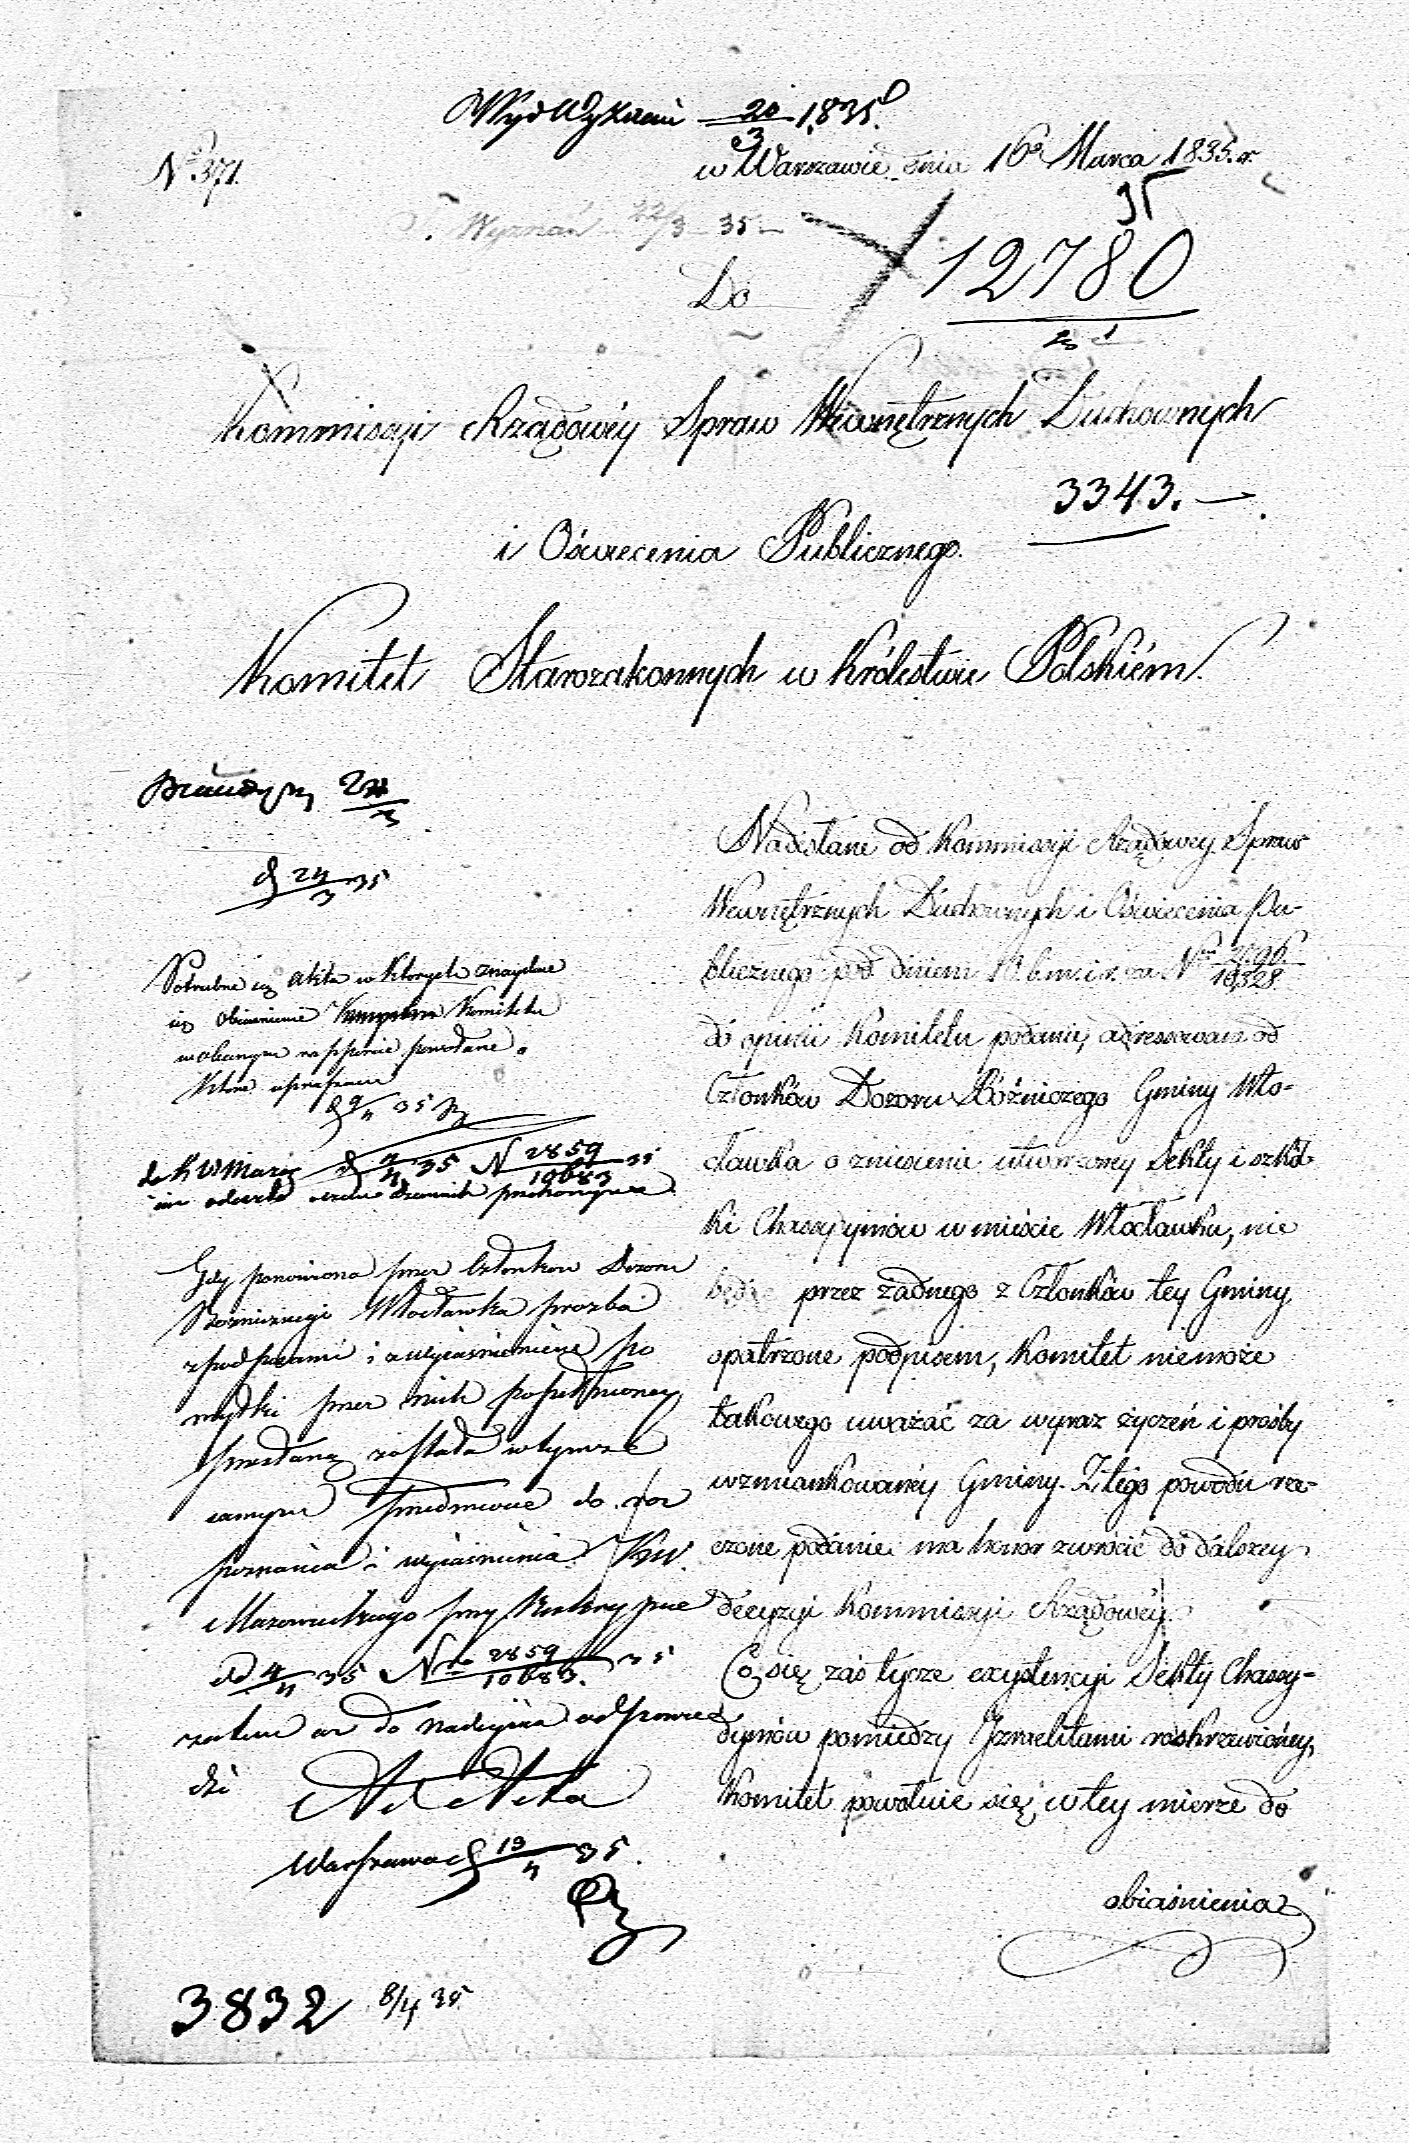 Wyd Wyznań 20/3 1835
w Warszawie dnia 16º Marca 1835. r.
Nº 371.
35
Wyznań 22/3 35
12780
Do
Kommissyi Rządowéy Spraw Wewnętrznych Duchownych
3343.
i Oświecenia Publicznego.
Komitet Starozakonnych w Królestwie Polskiém.
24/3
d 24/3 35
Potrzebne są akta w których znayduie
się obiaśnienie Komitetu
powołane.
Które upraszam
d 9/4 35
d 4/4 35 N 2859/10683 35
Gdy ponowiona przez Członków Dozoru
Bożniczego Włocławka prozba
z podpisami i z wyiaśnieniem po
myłki przez nich popełnioney
przesłaną została w tymże
samym przedmiocie do roz
poznania i wyiaśnienia KW.
Mazowieckiego przy
d 4/4 35 Nro 2859/10683 35
zatem do nadeyścia odpowie
dzi
Ad Acta
Warszawa d 13/4 35.
3832 8/4 35
Nadesłane od Kommissyi Rządowey Spraw
Wewnętrznych Duchownych i Oświecenia Pu-
blicznego pod dniem b. m. i r. za Nrem /10,328
do opinii Komitetu podanie, adressowane od
Członków Dozoru Bóżniczego Gminy Wło-
cławka o zniesienie utworzoney Sekty i szkół-
ki Chassydymów w mieście Włocławku, nie
będąc przez żadnego z Członków tey Gminy
opatrzone podpisem, Komitet niemoże
takowego uważać za wyraz życzeń i prośby
wzmiankowanéy Gminy. Z tégo powodu rze-
czone podanie ma honor zwrócić do dalszey
decyzyi Kommissyi Rządowéy.
Co się zaś tycze exystencyi Sekty Chassy-
dymów pomiędzy Izraelitami rozkrzewionéy,
Komitet powołuie się w tey mierze do
obiaśnienia